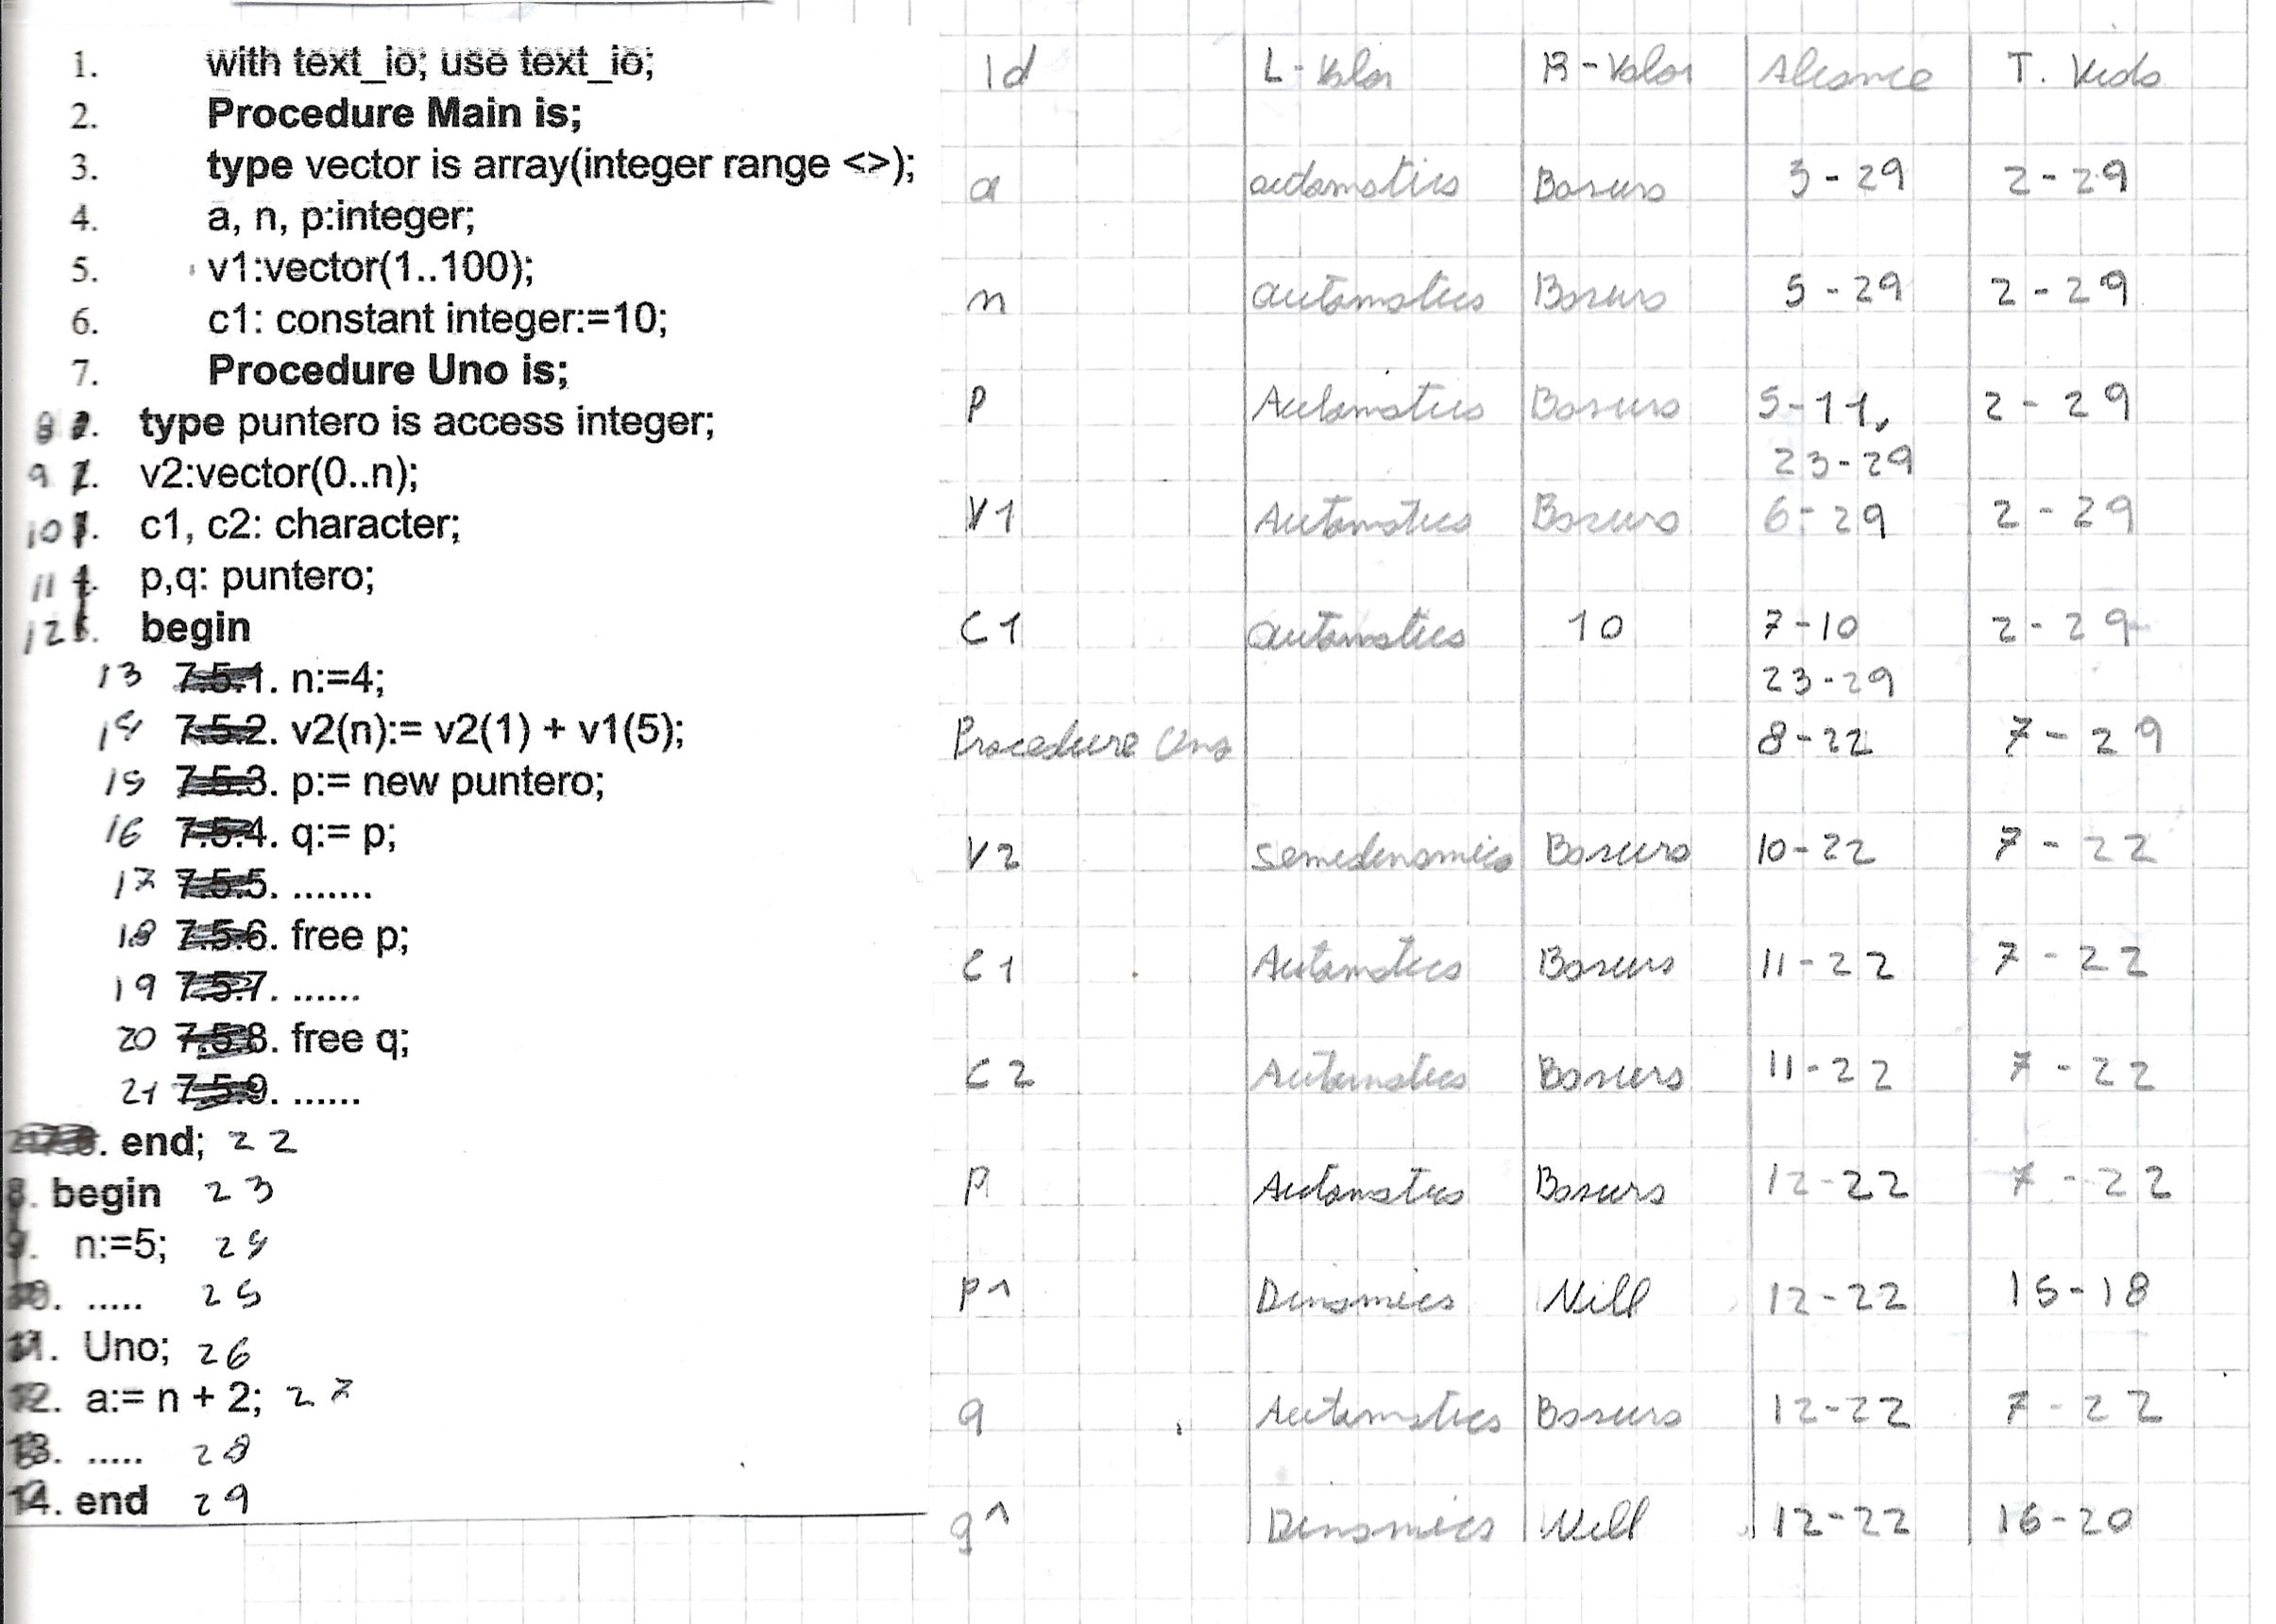 1. with text_io; use text_io;
2. Procedure Main is;
3. type vector is array(integer range <>);
4. a, n, p:integer;
5. v1:vector(1..100);
6. c1: constant integer:=10;
7. Procedure Uno is;
8 type puntero is access integer;
9 v2:vector(0..n);
10 c1, c2: character;
11 p,q: puntero;
12 begin
13 7.5.1. n:=4;
14 7.5.2. v2(n):= v2(1) + v1(5);
15 7.5.3. p:= new puntero;
16 7.5.4. q:= p;
17 7.5.5. .......
18 7.5.6. free p;
19 7.5.7. ......
20 7.5.8. free q;
21 7.5.9. ......
end; 22
8. begin 23
9. n:=5; 24
10. ..... 25
11. Uno; 26
12. a:= n + 2; 27
13. ..... 28
14. end 29
Id L-Valor R-Valor Alcance T. Vida
a automatica Basura 5-29 2-29
n automatica Basura 5-29 2-29
P Automatica Basura 5-11, 2-29
23-29
V1 Automatica Basura 6-29 2-29
C1 automatica 10 7-10 2-29
23-29
Procedure Uno 8-22 7-29
V2 semidinamica Basura 10-22 7-22
C1 Automatica Basura 11-22 7-22
C2 Automatica Basura 11-22 7-22
P Automatica Basura 12-22 7-22
P^ Dinamica Nill 12-22 15-18
q Automatica Basura 12-22 7-22
q^ Dinamica Nill 12-22 16-20